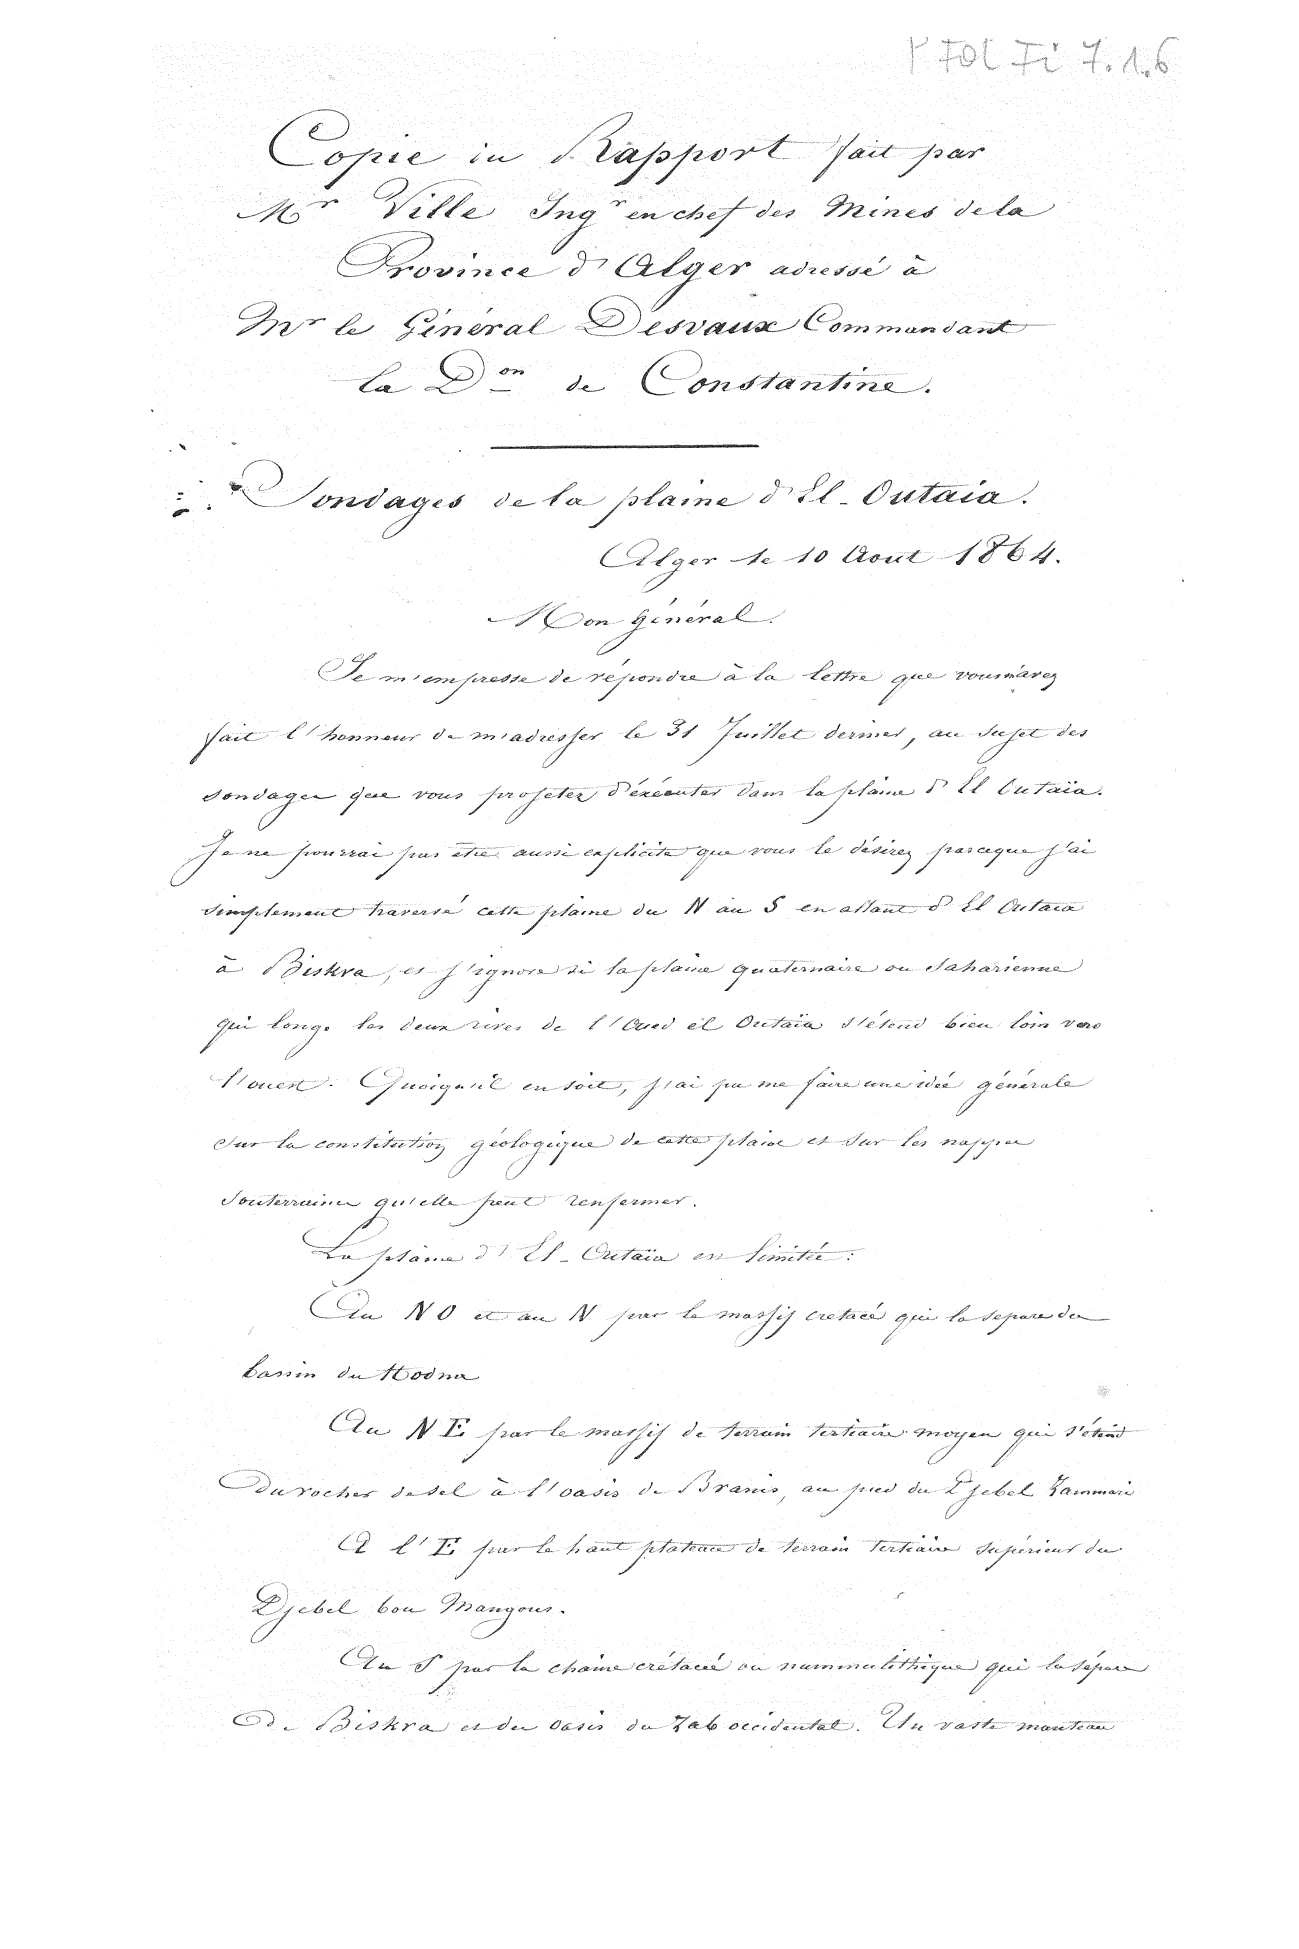 P FOL Fi 7.1.6
Copie du Rapport fait par
Mr Ville Ingr en chef des Mines de la
Province d'Alger adressé à
Mr le Général Desvaux Commandant
la Don de Constantine.
Sondages de la plaine d'El-Outaïa.
Alger le 10 Aout 1864.
Mon Général.
Je m'empresse de répondre à la lettre que vous m'avez
fait l'honneur de m'adresser le 31 Juillet dernier, au sujet des
sondages que vous projetez d'éxécuter dans la plaine d'El Outaïa.
Je ne pourrai pas être aussi explicite que vous le désirez parceque j'ai
simplement traversé cette plaine du N au S en allant d'El Outaïa
à Biskra, et j'ignore si la plaine quaternaire ou saharienne
qui longe les deux rives de l'Oued el Outaïa s'étend bien loin vers
l'ouest. Quoiqu'il en soit, j'ai pu me faire une idée générale
sur la constitution géologique de cette plaine et sur les nappes
souterraines qu'elle peut renfermer.
La plaine d'El-Outaïa est limitée:
Au NO et au N par le massif cretacé qui la separe du
bassin du Hodna
Au NE par le massif de terrain tertiaire moyen qui s'étend
du rocher de sel à l'oasis de Branis, au pied du Djebel
A l'E par le haut plateau de terrain tertiaire supérieur du
Djebel bou Mangous.
Au S par la chaîne crétacée ou nummulithique qui la sépare
de Biskra et des oasis du Zab occidental. Un vaste manteau